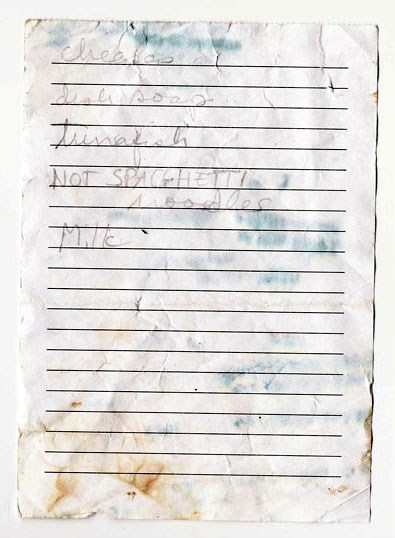 dish soap
tunafish
NOT SPAGHETTI
noodles
Milk